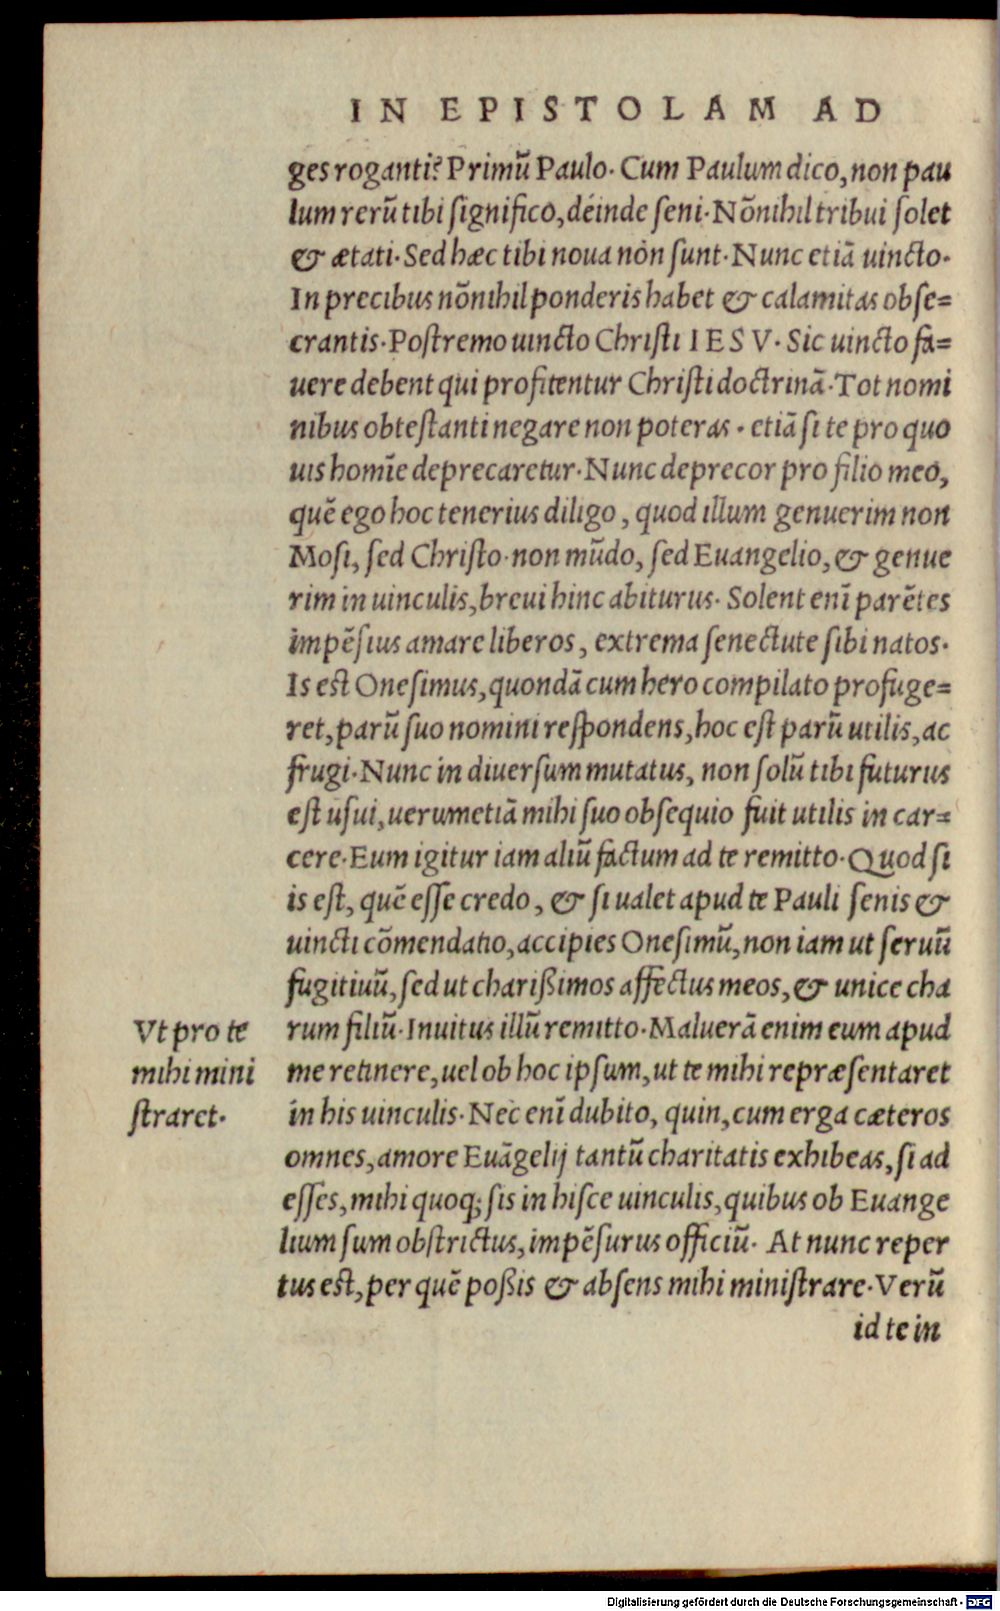 IN EPISTOLAM AD
ges roganti? Primũ Paulo. Cum Paulum dico, non pau
lum rerũ tibi ſignifico, deinde ſeni. Nõnihil tribui ſolet
& ætati. Sed hæc tibi noua non ſunt. Nunc etiã uincto.
In precibus nõnihil ponderis habet & calamitas obſe=
crantis. Poſtremo uincto Chriſti IESV. Sic uincto fa=
uere debent qui profitentur Chriſti doctrinã. Tot nomi
nibus obteſtanti negare non poteras. etiã ſi te pro quo
uis homĩe deprecaretur. Nunc deprecor pro filio meo,
quẽ ego hoc tenerius diligo, quod illum genuerim non
Moſi, ſed Chriſto. non mũdo, ſed Euangelio, & genue
rim in uinculis, breui hinc abiturus. Solent enĩ parẽtes
impẽſius amare liberos, extrema ſenectute ſibi natos.
Is eſt Oneſimus, quondã cum hero compilato profuge=
ret, parũ ſuo nomini reſpondens, hoc eſt parũ utilis, ac
frugi. Nunc in diuerſum mutatus, non ſolũ tibi futurus
eſt uſui, uerumetiã mihi ſuo obſequio fuit utilis in car=
cere. Eum igitur iam aliũ factum ad te remitto. Quod ſi
is eſt, quẽ eſſe credo, & ſi ualet apud te Pauli ſenis &
uincti cõmendatio, accipies Oneſimũ, non iam ut ſeruũ
fugitiuũ, ſed ut chariſſimos affectus meos, & unice cha
rum filiũ. Inuitus illũ remitto. Maluerã enim eum apud
me retinere, uel ob hoc ipſum, ut te mihi repræſentaret
in his uinculis. Nec enĩ dubito, quin, cum erga cæteros
omnes, amore Euãgelij tantũ charitatis exhibeas, ſi ad
eſſes, mihi quoq; ſis in hiſce uinculis, quibus ob Euange
lium ſum obſtrictus, impẽſurus officiũ. At nunc reper
tus eſt, per quẽ poſſis & abſens mihi miniſtrare. Verũ
id te in
Vt pro te
mihi mini
ſtraret.
Digitalisierung gefördert durch die Deutsche Forschungsgemeinschaft - DFG